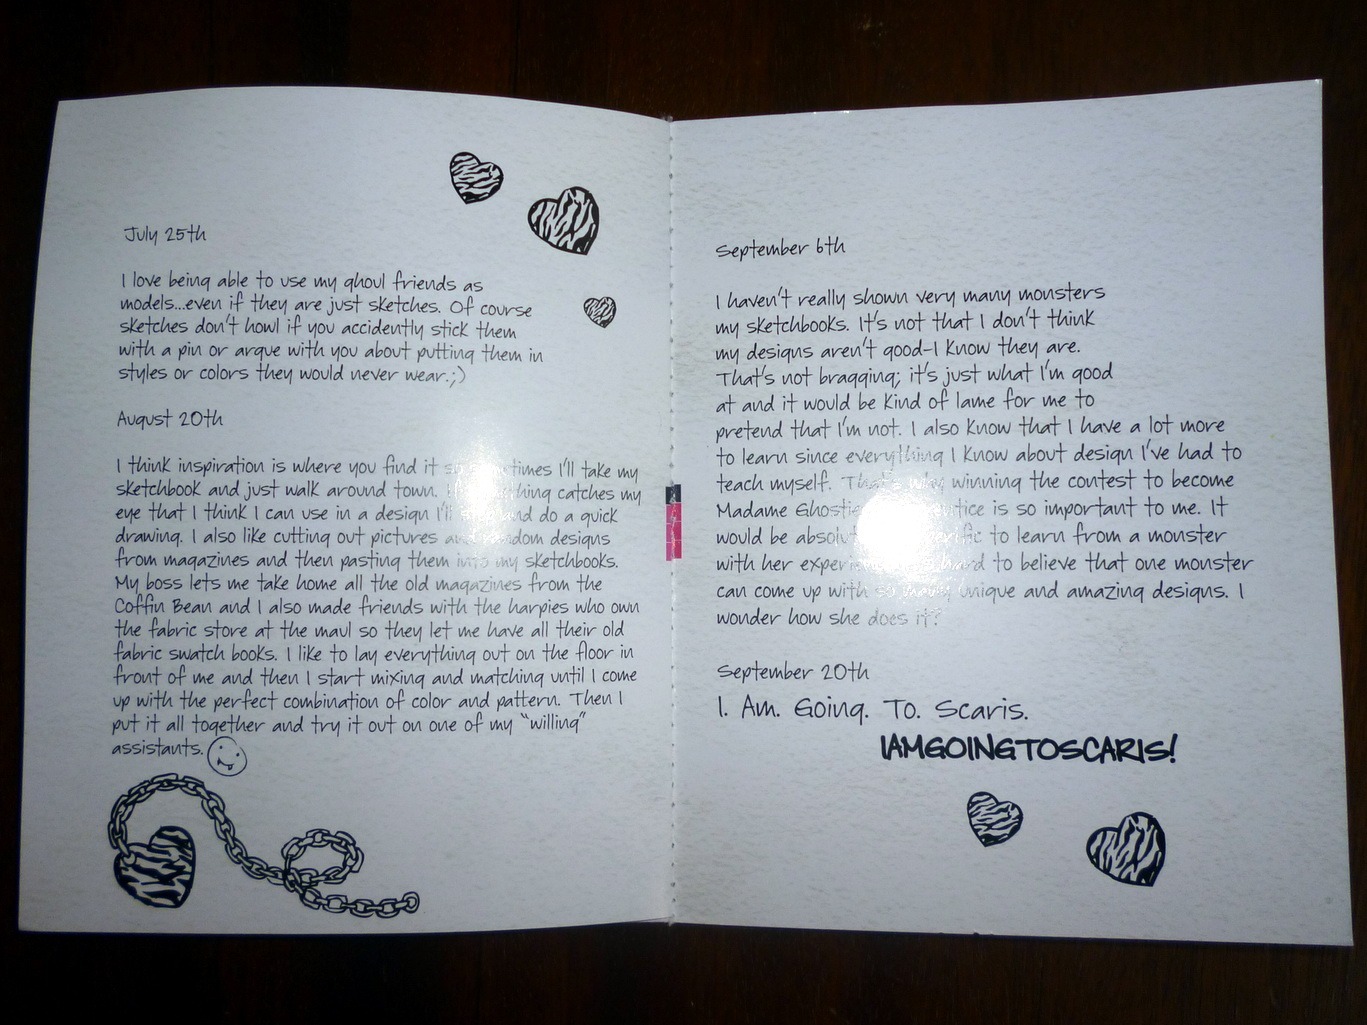 July 25th
I love being able to use my ghoul friends as
models...even if they are just sketches. Of course
sketches don't howl if you accidently stick them
with a pin or argue with you about putting them in
styles or colors they would never wear.;)
August 20th
I think inspiration is where you find it so sometimes I'll take my
sketchbook and just walk around town. If something catches my
eye that I think I can use in a design I'll stop and do a quick
drawing. I also like cutting out pictures and random designs
from magazines and then pasting them into my sketchbooks.
My boss lets me take home all the old magazines from the
Coffin Bean and I also made friends with the harpies who own
the fabric store at the maul so they let me have all their old
fabric swatch books. I like to lay everything out on the floor in
front of me and then I start mixing and matching until I come
up with the perfect combination of color and pattern. Then I
put it all together and try it out on one of my "willing"
assistants.
September 6th
I haven't really shown very many monsters
my sketchbooks. It's not that I don't think
my designs aren't good-I know they are.
That's not bragging; it's just what I'm good
at and it would be kind of lame for me to
pretend that I'm not. I also know that I have a lot more
to learn since everything I know about design I've had to
teach myself. That's why winning the contest to become
Madame is so important to me. It
would be to learn from a monster
with her to believe that one monster
can come up with so many unique and amazing designs. I
wonder how she does it?
September 20th
I. Am. Going. To. Scaris.
IAMGOINGTOSCARIS!